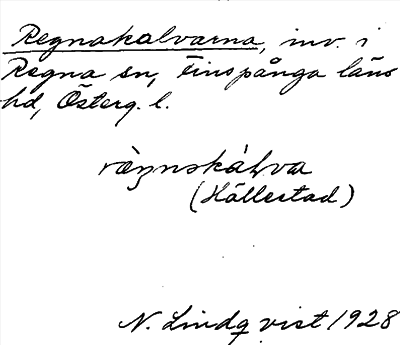 Regnakalvarna, inv. i
Regna sn, Finspånga läns
hd, Österg. l.
ràŋnskálva
(Hällestad)
N. Lindqvist 1928